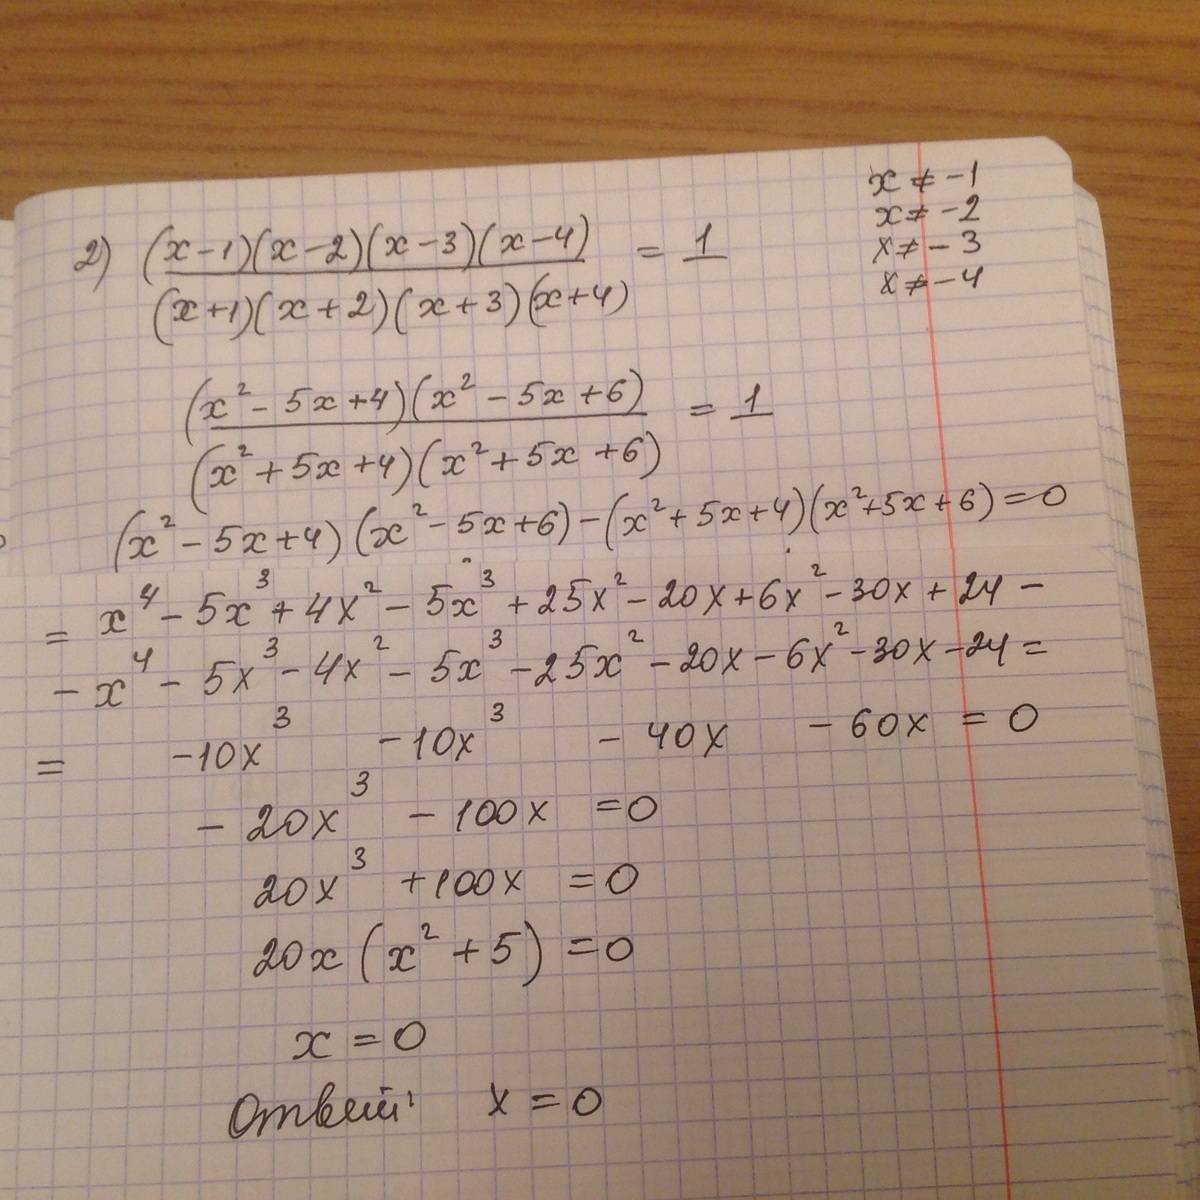 2) (x-1)(x-2)(x-3)(x-4) / (x+1)(x+2)(x+3)(x+4) = 1
x ≠ -1
x ≠ -2
x ≠ -3
x ≠ -4
(x² - 5x+4)(x² - 5x+6) / (x² + 5x+4)(x² + 5x+6) = 1
(x² - 5x+4)(x² - 5x+6) - (x² + 5x+4)(x²+5x+6) = 0
= x⁴ - 5x³ + 4x² - 5x³ + 25x² - 20x + 6x² - 30x + 24 -
- x⁴ - 5x³ - 4x² - 5x³ - 25x² - 20x - 6x² - 30x - 24 =
= -10x³ -10x³ - 40x - 60x = 0
- 20x³ - 100x = 0
20x³ +100x = 0
20x (x² + 5) = 0
x = 0
Ответ: x = 0